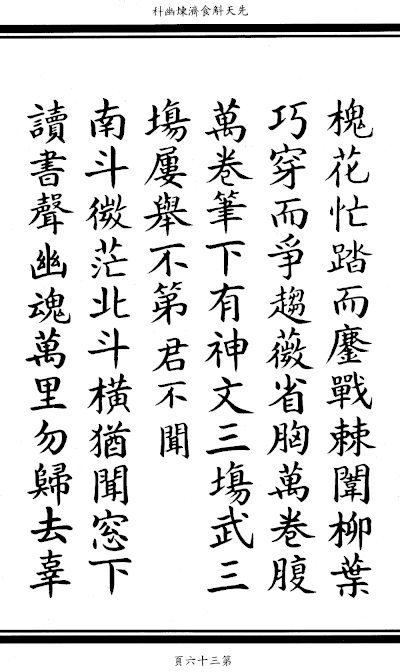 先天斛食濟煉幽科
槐花忙踏而鏖戰棘闈柳葉
巧穿而爭趨薇省胸萬卷腹
萬卷筆下有神文三塲武三
塲屢舉不第君不聞
南斗微茫北斗橫猶聞窓下
讀書聲幽魂萬里勿歸去辜
第三十六頁